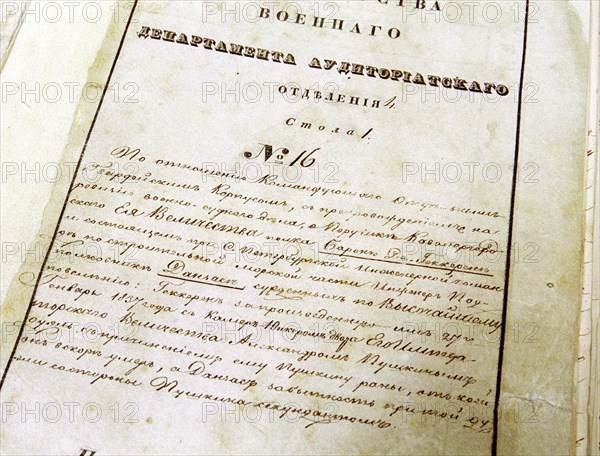 СТВА
ВОЕННАГО
ДЕПАРТАМЕНТА АУДИТОРІАТСКАГО
ОТДѢЛЕНІЯ 1,
Стола 1.
№ 16
По отношенію Командующаго Отдѣльнымъ
Гвардейскимъ Корпусомъ, съ препровожденіемъ на
военно-суднаго дѣла, о Поручикѣ Кавалергард
скаго Ея Величества полка Баронѣ Де-Геккеренѣ
и состоящемъ при С. Петербургской Инженерной
по строительной морской части Инженеръ Под
полковникѣ Данзасѣ сужденныхъ по Высочайшему
повелѣнію: Геккеренъ за произведенную имъ 27го
Генваря 1837 года съ Камеръ-Юнкеромъ двора Его Импера
торскаго Величества Александромъ Пушкинымъ
дуэль съ причиненіемъ ему Пушкину раны, отъ коей
онъ вскорѣ умеръ, а Данзасъ за бытность при той ду
Пушкина секундантомъ.
PHOTO12